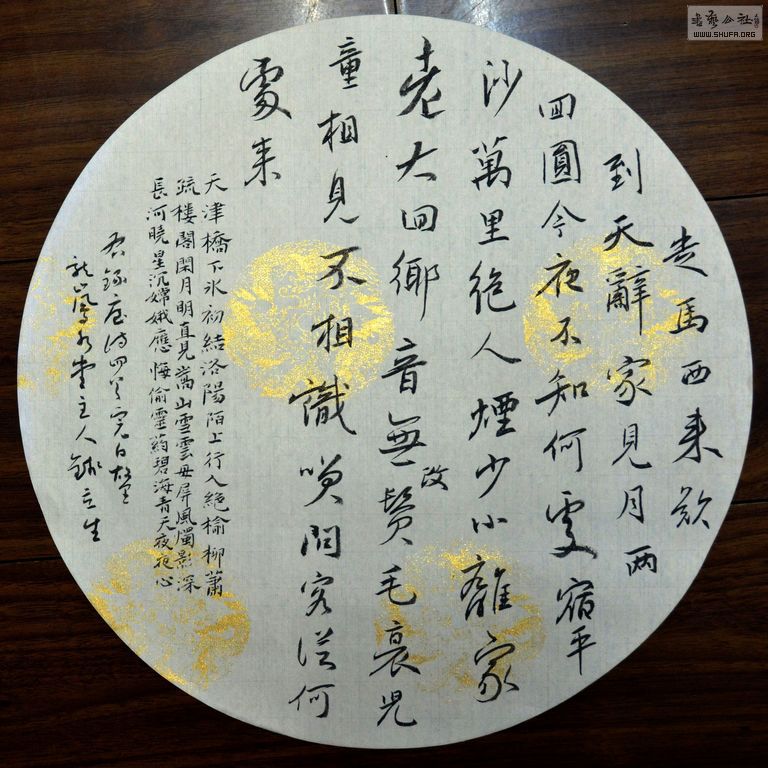 走馬西來欲
到天辭家見月两
回圓今夜不知何處宿平
沙萬里絕人煙少小離家
老大回鄉音無改鬢毛衰兒
童相見不相識笑問客從何
處來
天津橋下氷初結洛陽陌上行人絕榆柳蕭
疏樓閣閑月明直見嵩山雪雲母屏風燭影深
長河曉星沉嫦娥應悔偷靈葯碧海青天夜夜心
右錄唐詩四首
主人
書藝公社
WWW.SHUFA.ORG